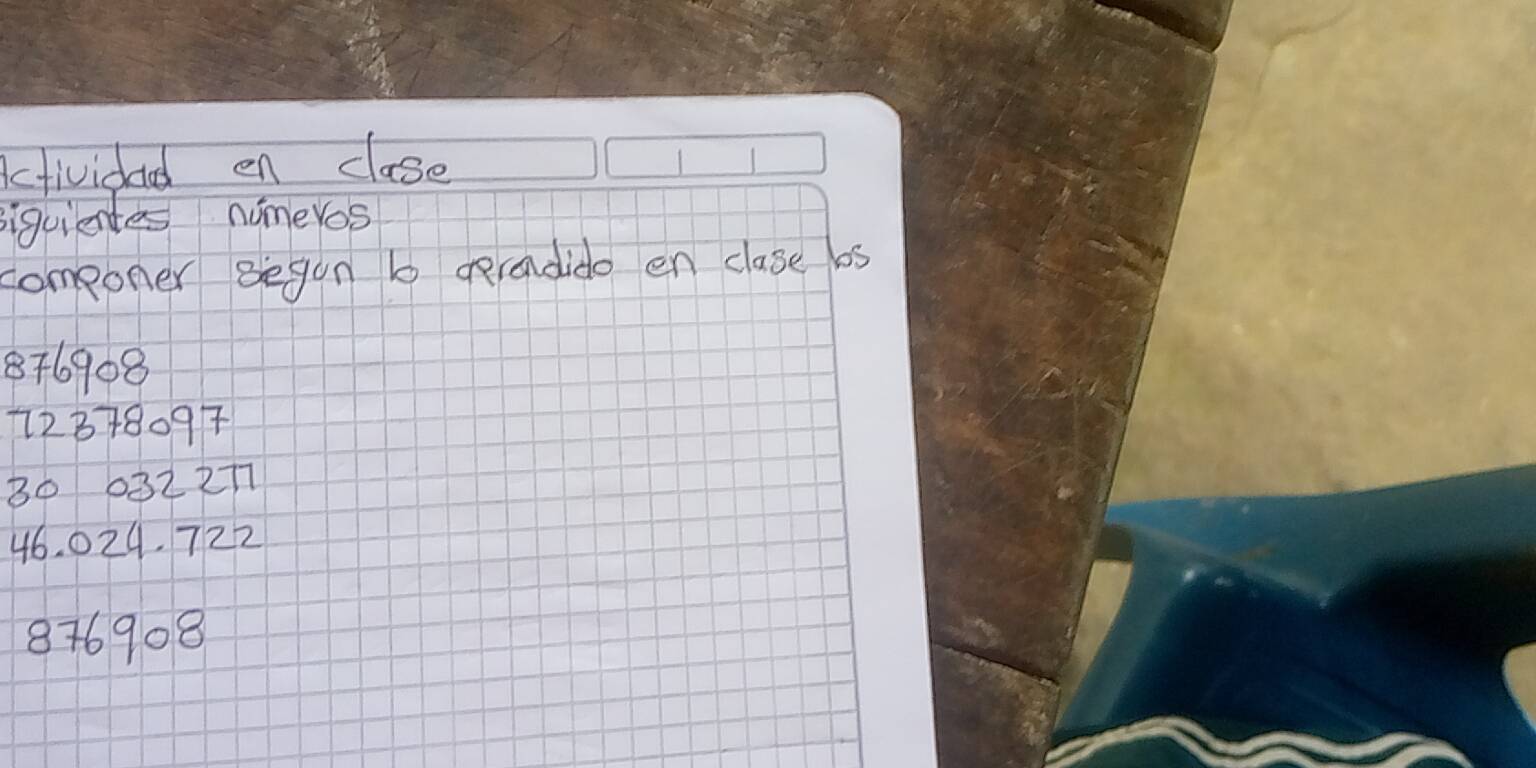 Actividad en clase
siguientes números
componer segun lo aprendido en clase los
876908
72378097
30 032 277
46.024.722
876908